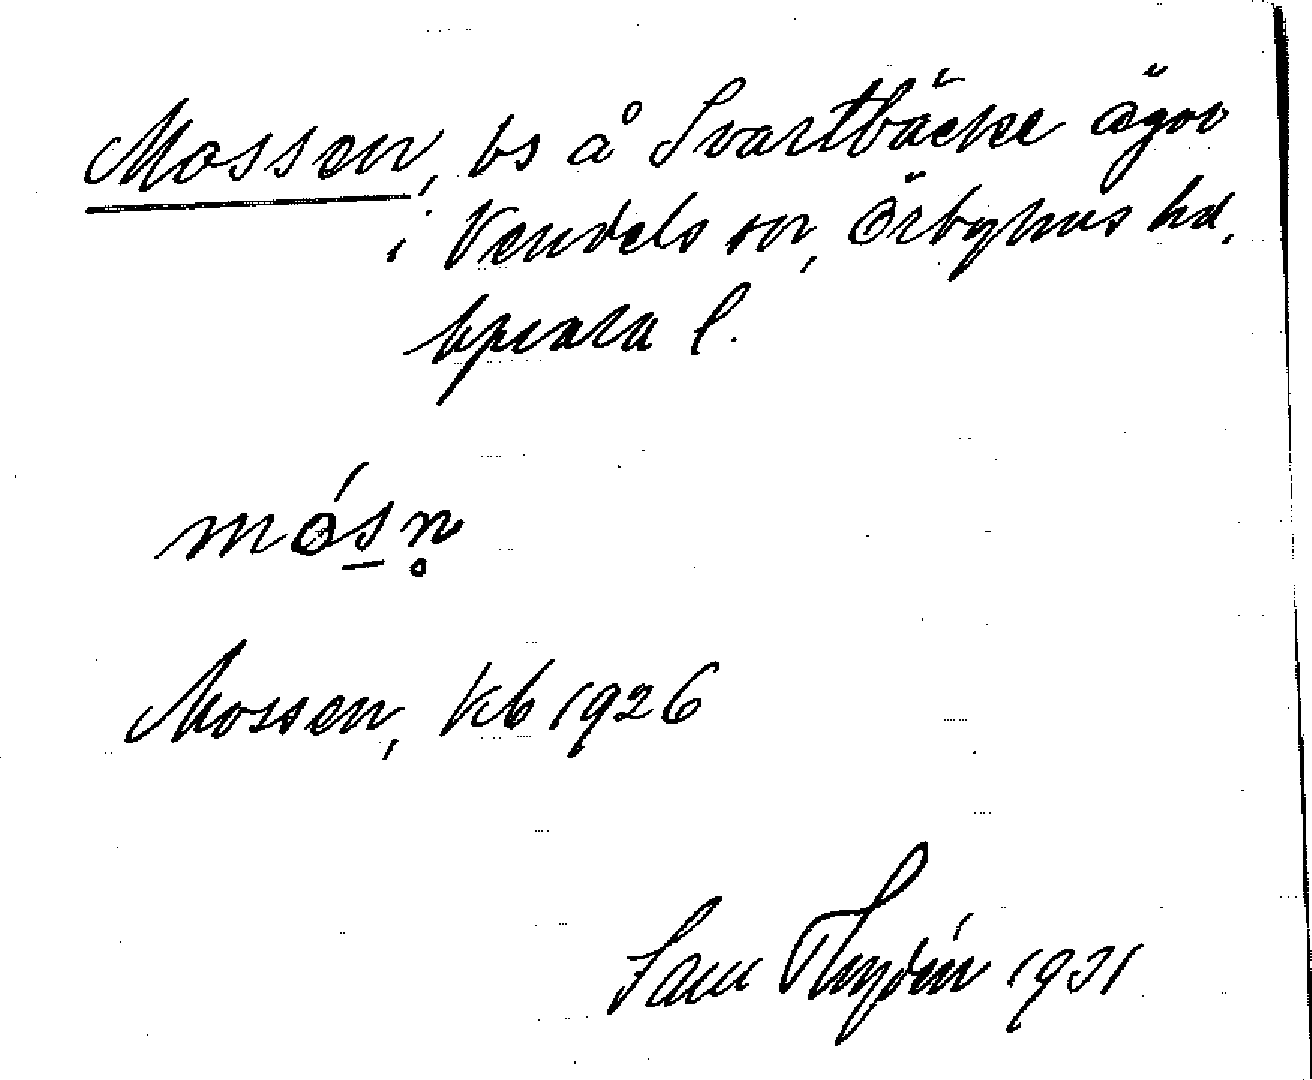 Mossen, bs å Svartbäcks ägor
i Vendels sn, Örbyhus hd,
Upsala l.
mós̲n̥
Mossen, Kb 1926
Sam 1931